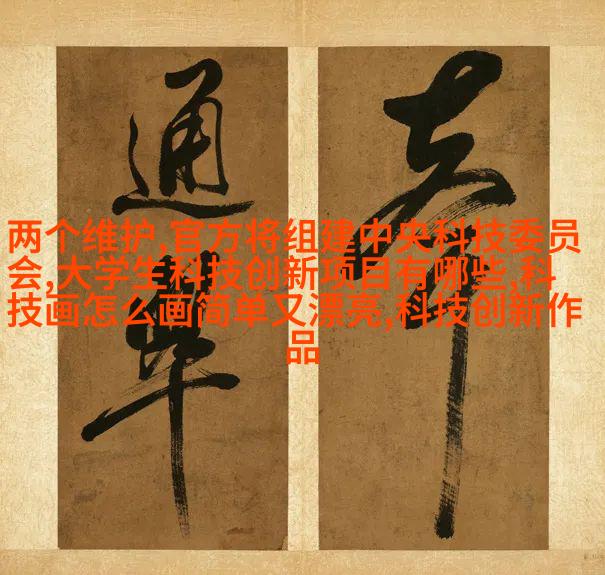 通
两个维护,官方将组建中央科技委员
会,大学生科技创新项目有哪些,科
技画怎么画简单又漂亮,科技创新作
品